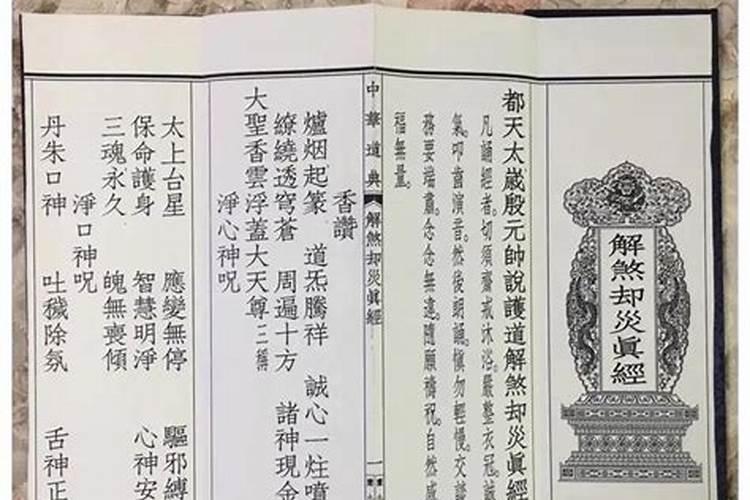 解煞却災眞經
都天太歲殷元帥說護道解煞却災眞經
凡誦經者。切須齋戒沐浴。嚴整衣冠。誠
氣。叩齒演音。然後朗誦。愼勿輕慢。交談
務要端肅。念念無違。隨願禱祝。自然感
福無量。
中華道典 解煞却災眞經 一
香讚
爐烟起篆 道炁騰祥 誠心一炷噴
繚繞透穹蒼 周遍十方 諸神現金
大聖香雲浮蓋大天尊三稱
淨心神呪
太上台星 應變無停 驅邪縛
保命護身 智慧明淨 心神安
三魂永久 魄無喪傾
淨口神呪
丹朱口神 吐穢除氛 舌神正